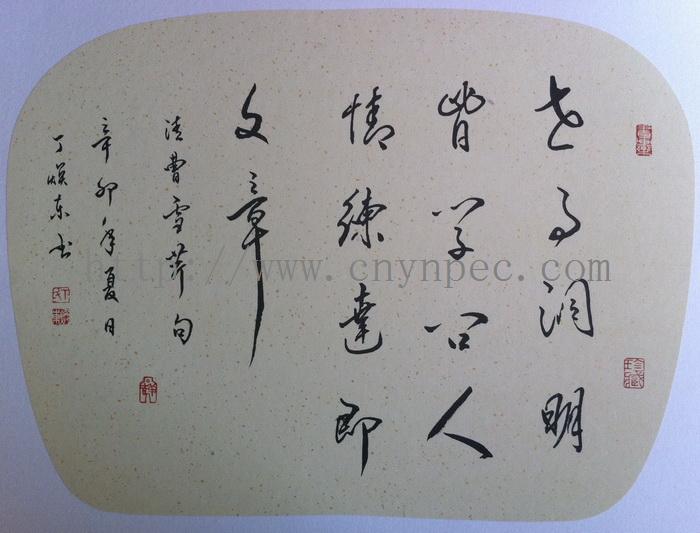 世事洞明
皆学问人
情練達即
文章
清曹雪芹句
辛卯年夏日
丁东书
http://www.cnynpec.com